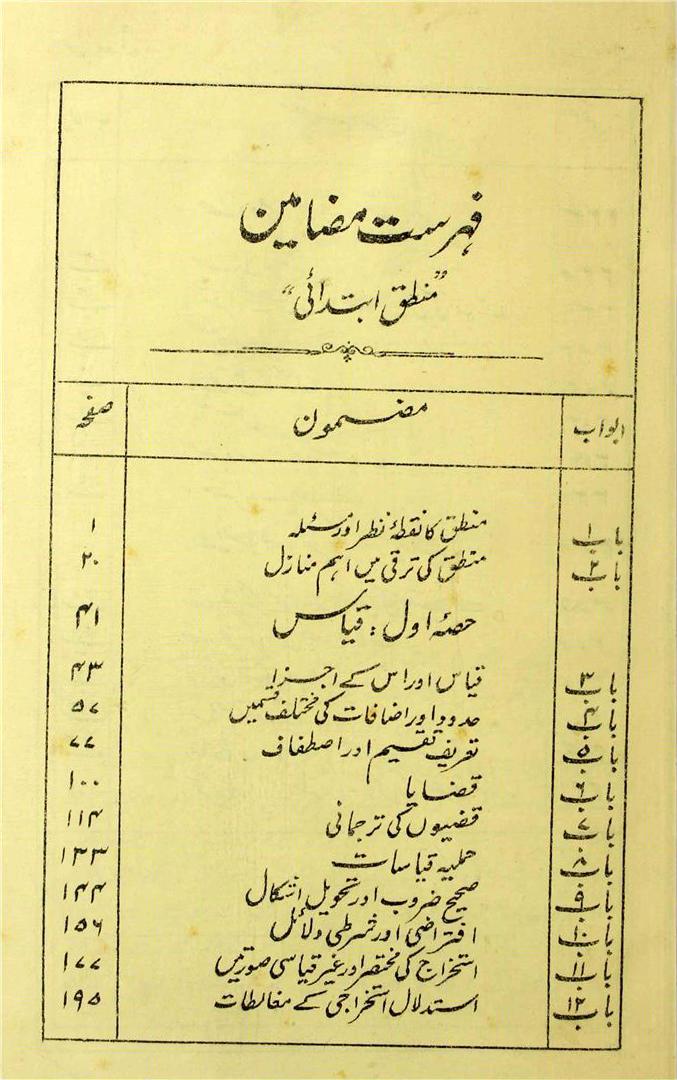 فہرست مضامین
”منطق ابتدائی“
ابواب مضمون صفحہ
باب ۱ منطق کا نقطۂ نظر اور مسئلہ ۱
باب ۲ منطق کی ترقی میں اہم منازل ۲۰
حصۂ اول : قیاس ۴۱
باب ۳ قیاس اور اس کے اجزا ۴۳
باب ۴ حدود اور اضافات کی مختلف قسمیں ۵۷
باب ۵ تعریف تقسیم اور اصطفاف ۷۷
باب ۶ قضایا ۱۰۰
باب ۷ قضیوں کی ترجمانی ۱۱۴
باب ۸ حملیہ قیاسات ۱۳۳
باب ۹ صحیح ضروب اور تحویل اشکال ۱۴۴
باب ۱۰ افتراضی اور شرطی دلائل ۱۵۶
باب ۱۱ استخراج کی مختصر اور غیر قیاسی صورتیں ۱۷۷
باب ۱۲ استدلال استخراجی کے مغالطات ۱۹۵